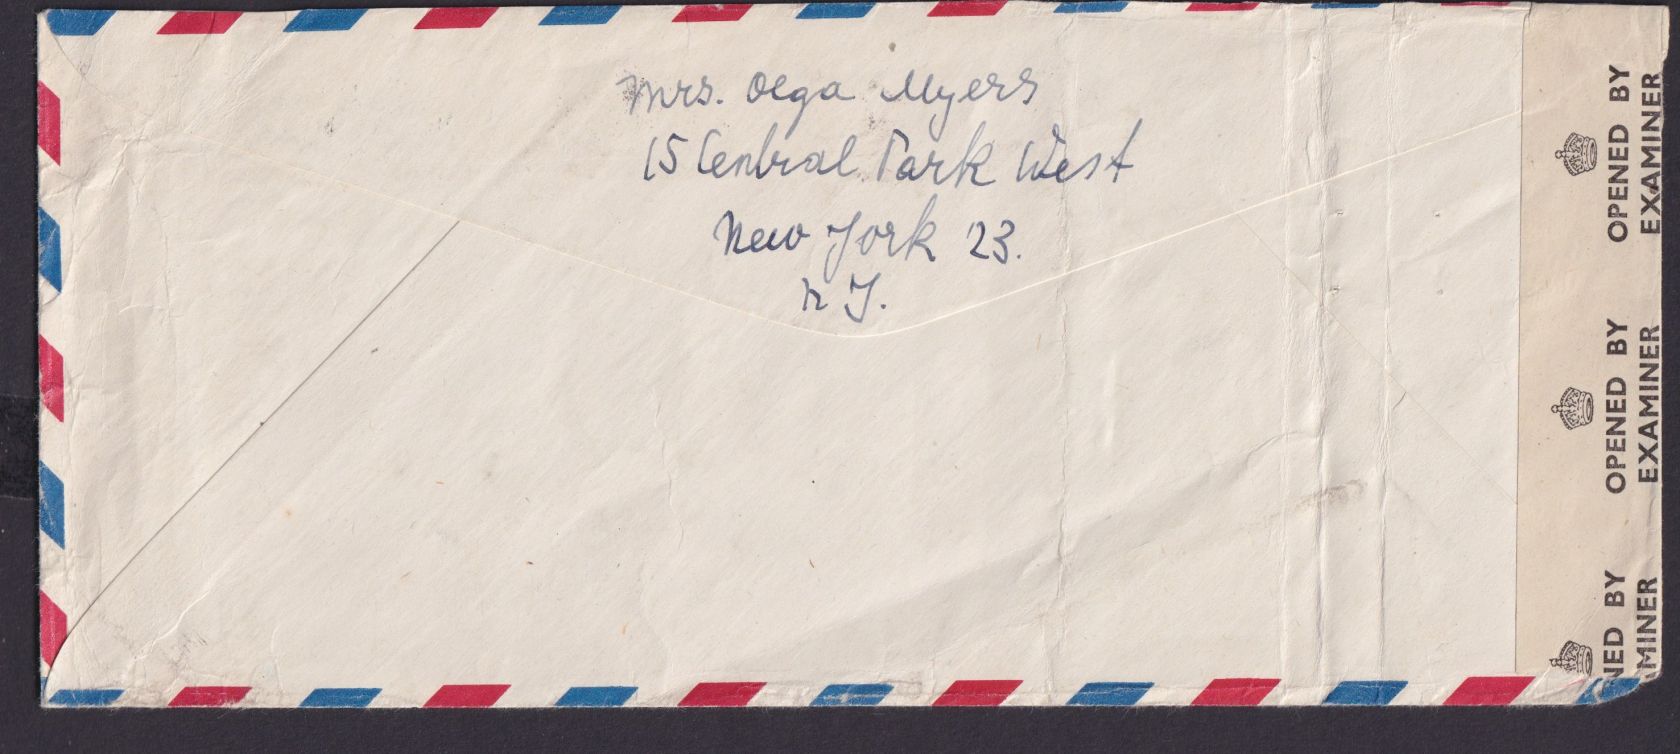 Mrs. Olga Myers
15 Central Park West
New York 23.
N Y.
OPENED BY
EXAMINER
OPENED BY
EXAMINER
NED BY
MINER